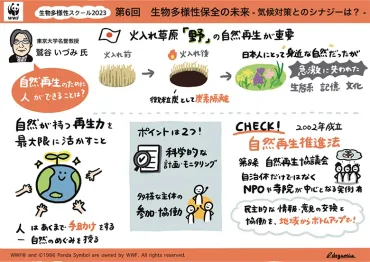 WWF
生物多様性スクール2023
第6回 生物多様性保全の未来 - 気候対策とのシナジーは? -
東京大学名誉教授
鷲谷 いづみ 氏
自然再生のために
人ができることは?
火入れ草原「野」の自然再生が重要
火入れ前
火入れ後
微粒炭として炭素隔離
日本人にとって身近な自然だったが
急激に失われた
生態系 記憶 文化
自然が持つ再生力を
最大限に活かすこと
人はあくまで手助けをする
自然のめぐみを授る
ポイントは2つ!
科学的な
計画・モニタリング
多様な主体の
参加・協働
CHECK! 2002年成立
自然再生推進法
第8条 自然再生協議会
自治体だけではなく
NPOや寺院が中心となる発例有
民主的な情報・意見の交換と
協働を、地域からボトムアップで!
WWF® and ©1986 Panda Symbol are owned by WWF. All rights reserved.